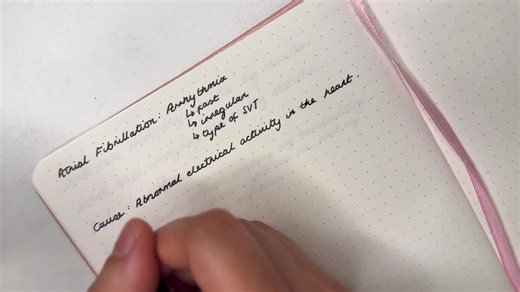 Atrial Fibrillation: Arrhythmia
↳ fast
↳ irregular
↳ type of SVT
Cause: Abnormal electrical activity in the heart.